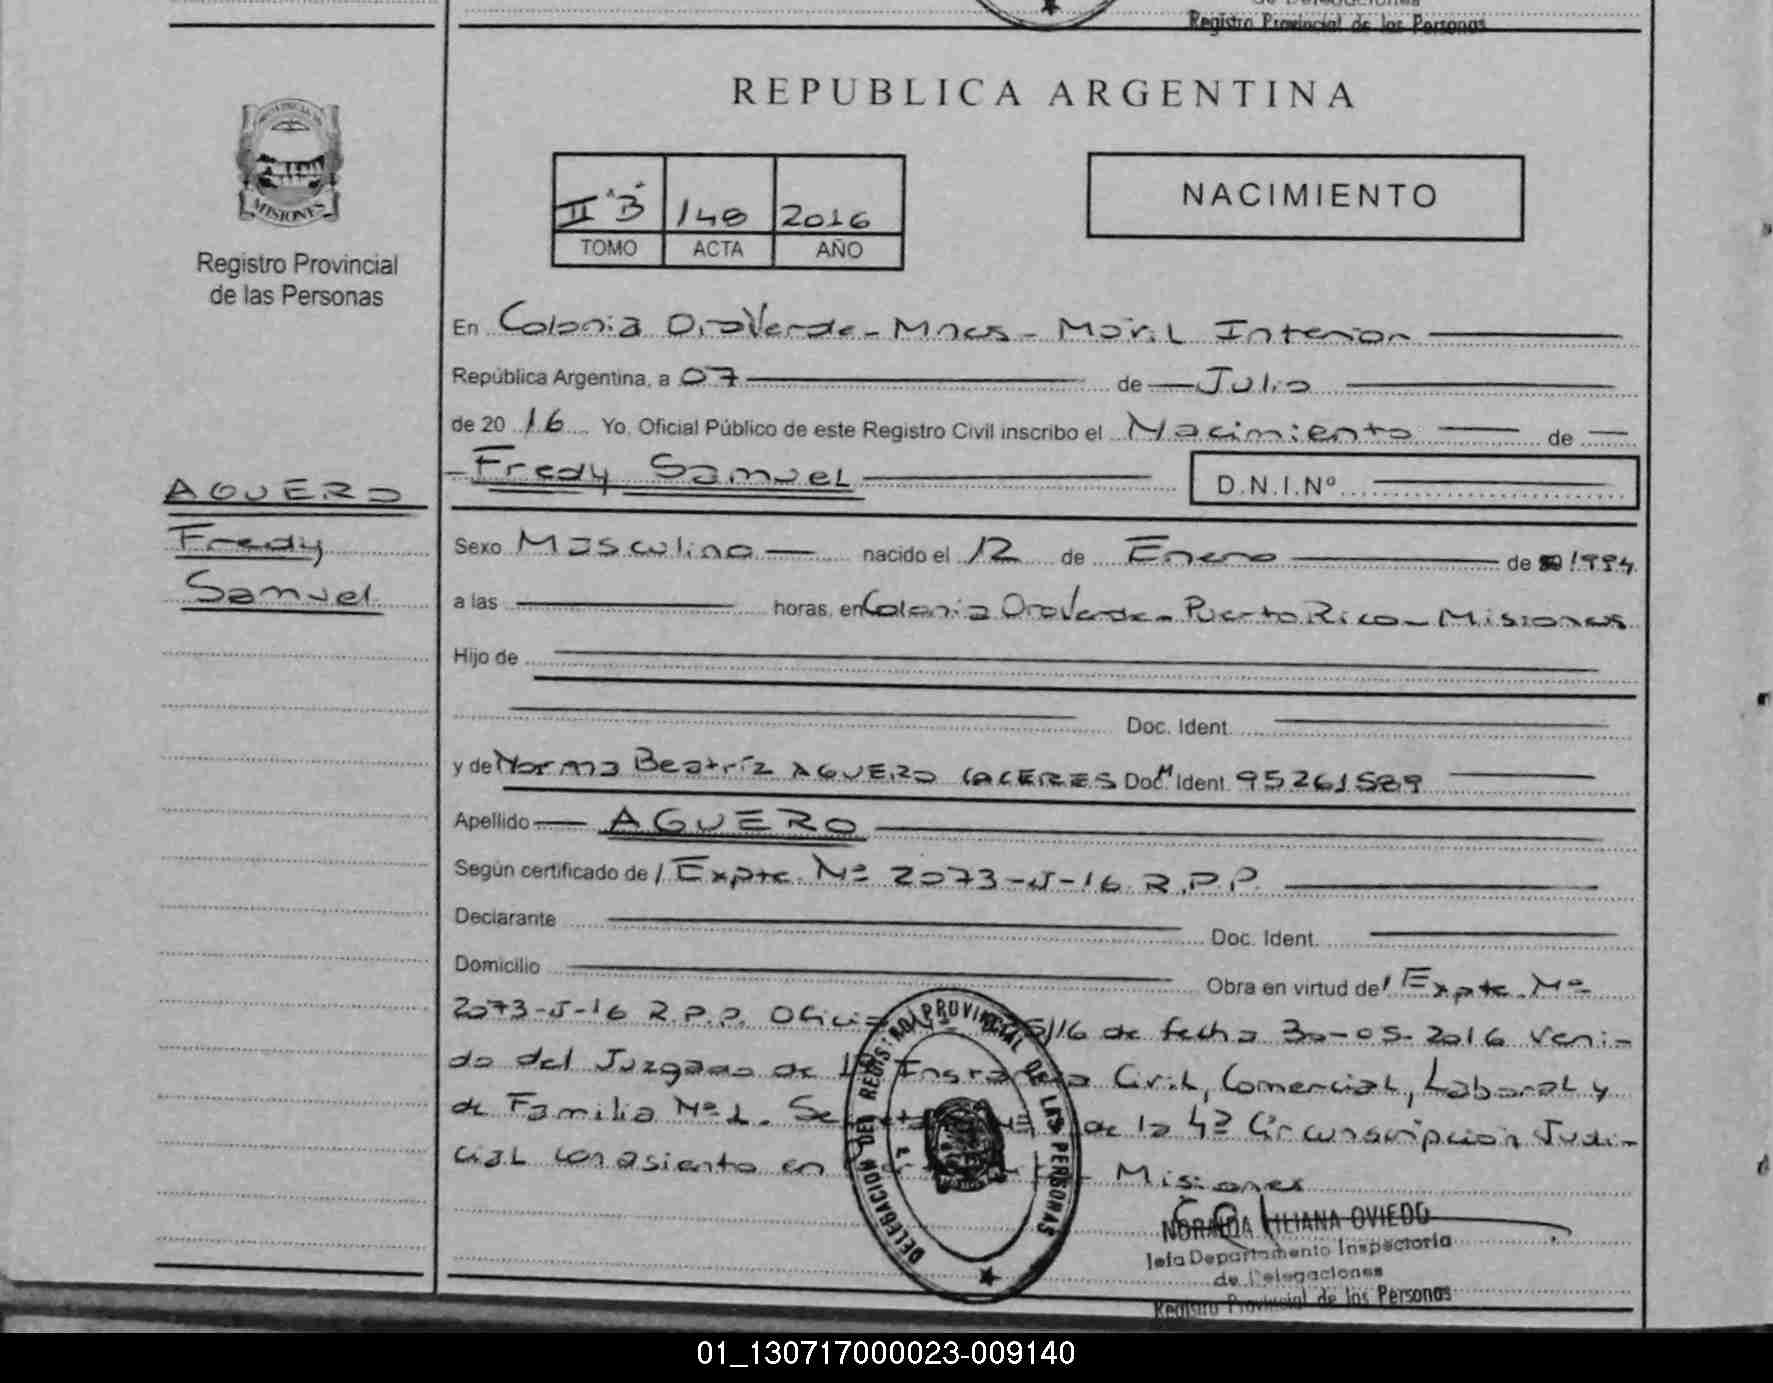 Registro Provincial de las Personas
REPUBLICA ARGENTINA
MISIONES
Registro Provincial
de las Personas
II "B" 148 2016
TOMO ACTA AÑO
NACIMIENTO
En Colonia OroVerde - Mnes - Movil Interior
República Argentina, a 07 de Julio
de 2016 Yo, Oficial Público de este Registro Civil inscribo el Nacimiento de
Fredy Samuel
D.N.I.Nº
AGUERO
Fredy
Samuel
Sexo Masculino nacido el 12 de Enero de 1994
a las horas, en Colonia OroVerde - Puerto Rico - Misiones
Hijo de
Doc. Ident.
y de Norma Beatríz AGUERO CACERES Doc. Ident. 95261589
Apellido AGUERO
Según certificado de / Expte. Nº 2073-J-16 R.P.P.
Declarante
Doc. Ident.
Domicilio
Obra en virtud de / Expte. Nº
2073-J-16 R.P.P. /16 de fecha 30-05-2016 veni-
do del Juzgado de 1º Instancia Civil, Comercial, Laboral y
de Familia Nº 1. de la 4º Circunscripcion Judi-
cial con asiento en Misiones
DELEGACION DEL REGISTRO PROVINCIAL DE LAS PERSONAS
NORAIDA LILIANA OVIEDO
Jefa Departamento Inspectoria
de Delegaciones
Registro Provincial de las Personas
01_130717000023-009140